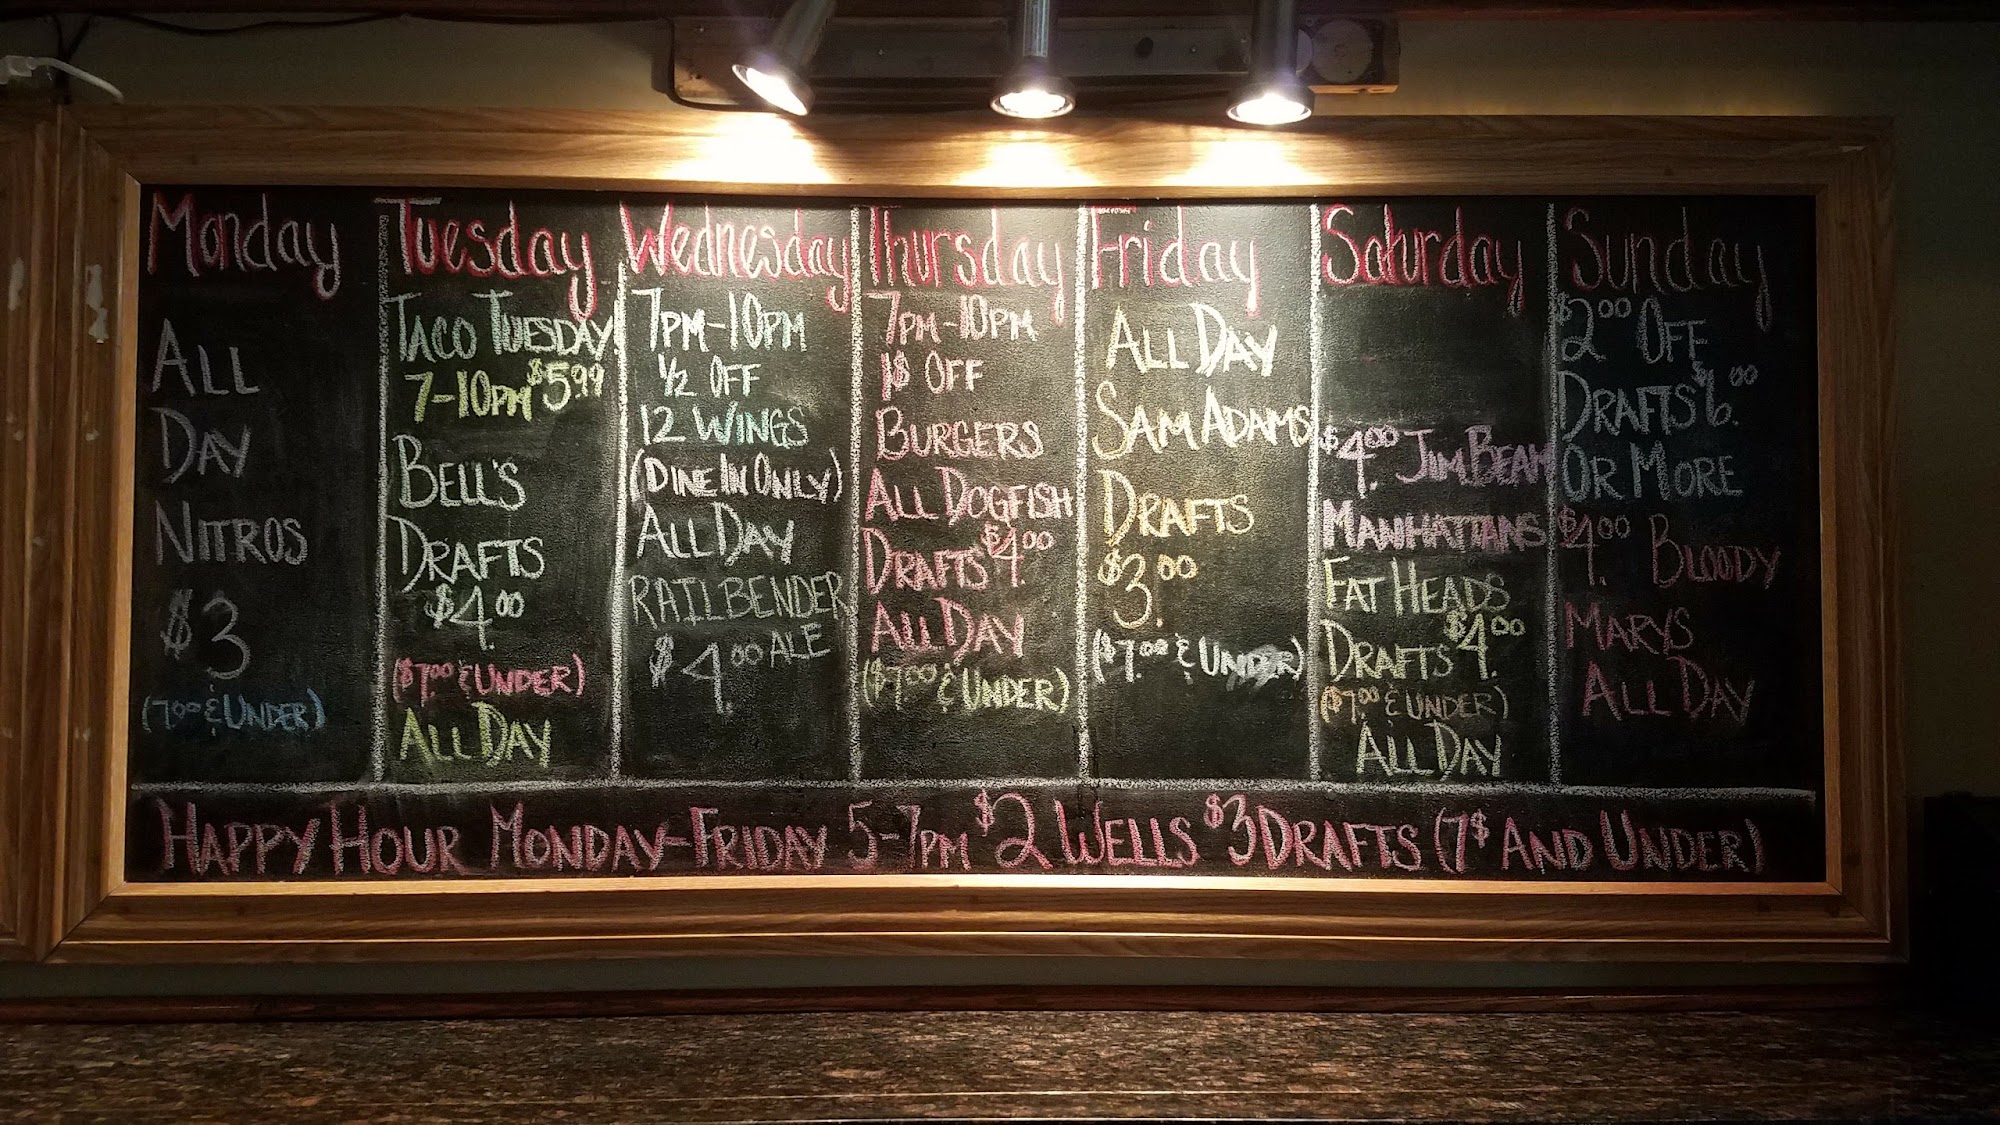 Monday
All
Day
Nitros
$3
(7.00 & Under)
Tuesday
Taco Tuesday
7-10pm $5.99
Bell's
Drafts
$4.00
($7.00 & Under)
All Day
Wednesday
7pm-10pm
1/2 Off
12 Wings
(Dine In Only)
All Day
Railbender
$4.00 Ale
Thursday
7pm-10pm
1$ Off
Burgers
All Dogfish
Drafts $4.00
All Day
($7.00 & Under)
Friday
All Day
Sam Adams
Drafts
$3.00
($7.00 & Under)
Saturday
$4.00 Jim Beam
Manhattans
Fat Heads
Drafts $4.00
($7.00 & Under)
All Day
Sunday
$2.00 Off
Drafts $6.00
Or More
$4.00 Bloody
Marys
All Day
Happy Hour Monday-Friday 5-7pm $2 Wells $3 Drafts (7$ And Under)